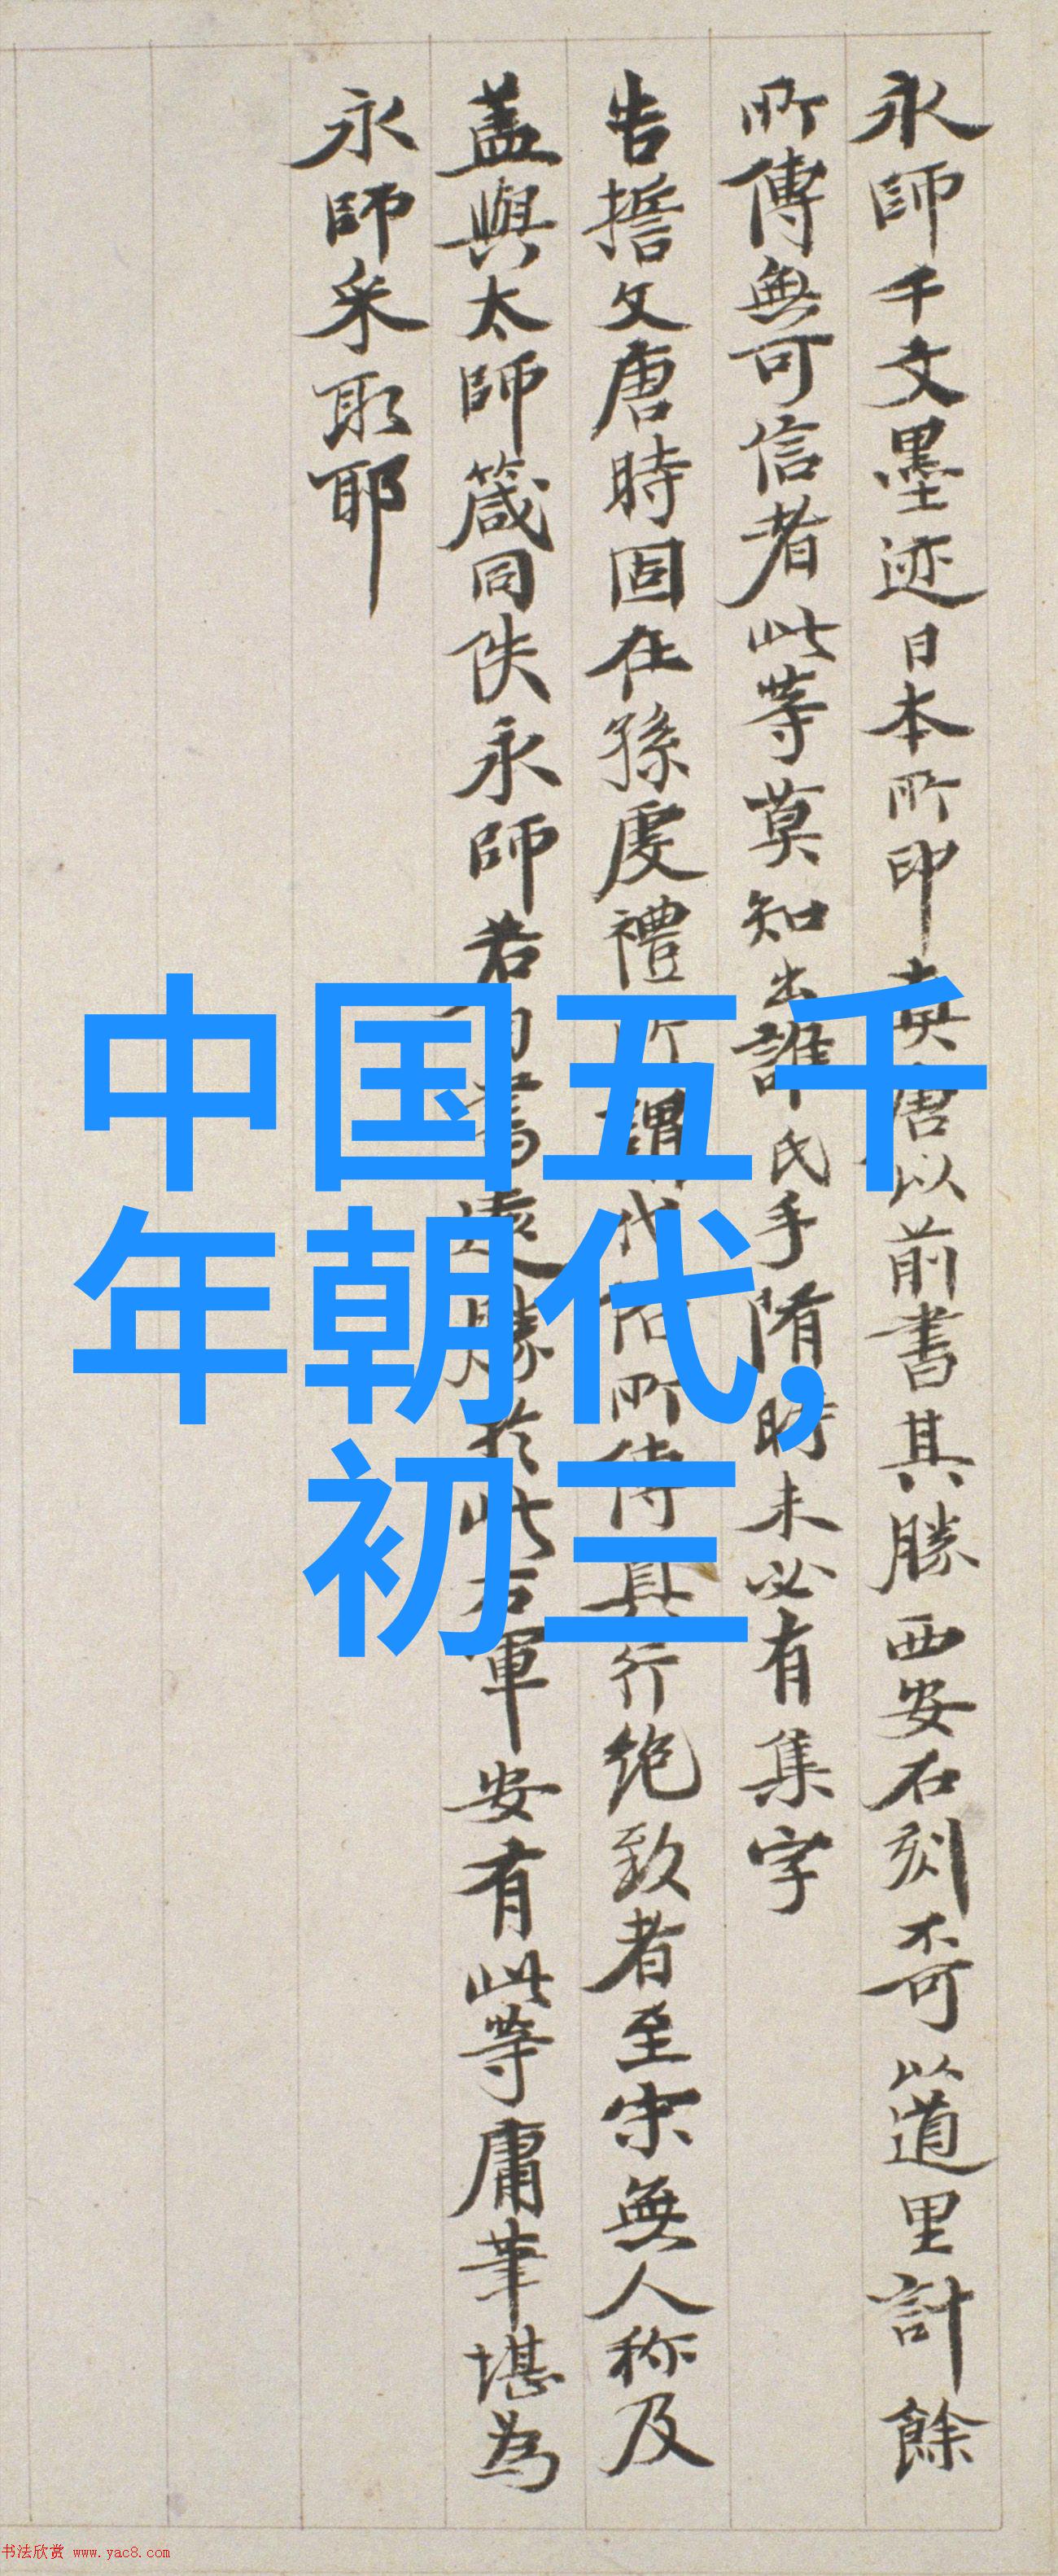 永師千文墨迹日本所印真唐以前書其勝西安石刻奇以道里計餘
所傳無可信者此等莫知出誰氏手隋時未必有集字
告擔文唐時固在孫虔禮所謂代俗所傳真行绝致者至宋無人称及
盖與太師箴同佚永師若有書遠勝於此右軍安有此等庸筆堪為
永師采取耶
中国五千
年朝代,
初三
书法欣赏 www.yac8.com